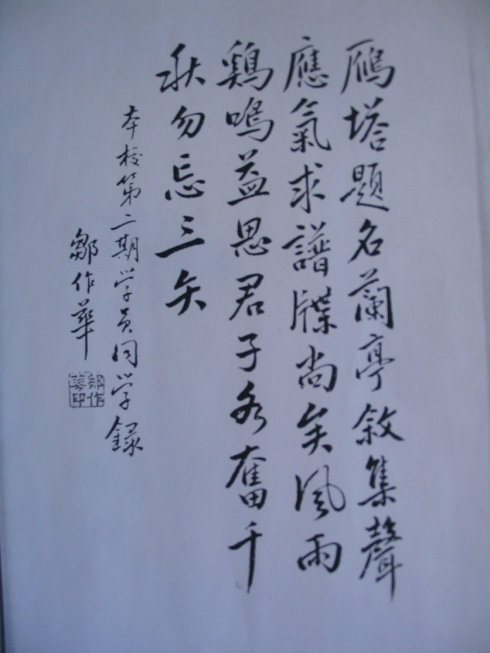 鴈塔題名蘭亭敘集聲
應氣求譜牒尚矣風雨
鷄鳴益思君子各奮千
秋勿忘三矢
本校第二期学員同学録
鄒作華
鄒作華印